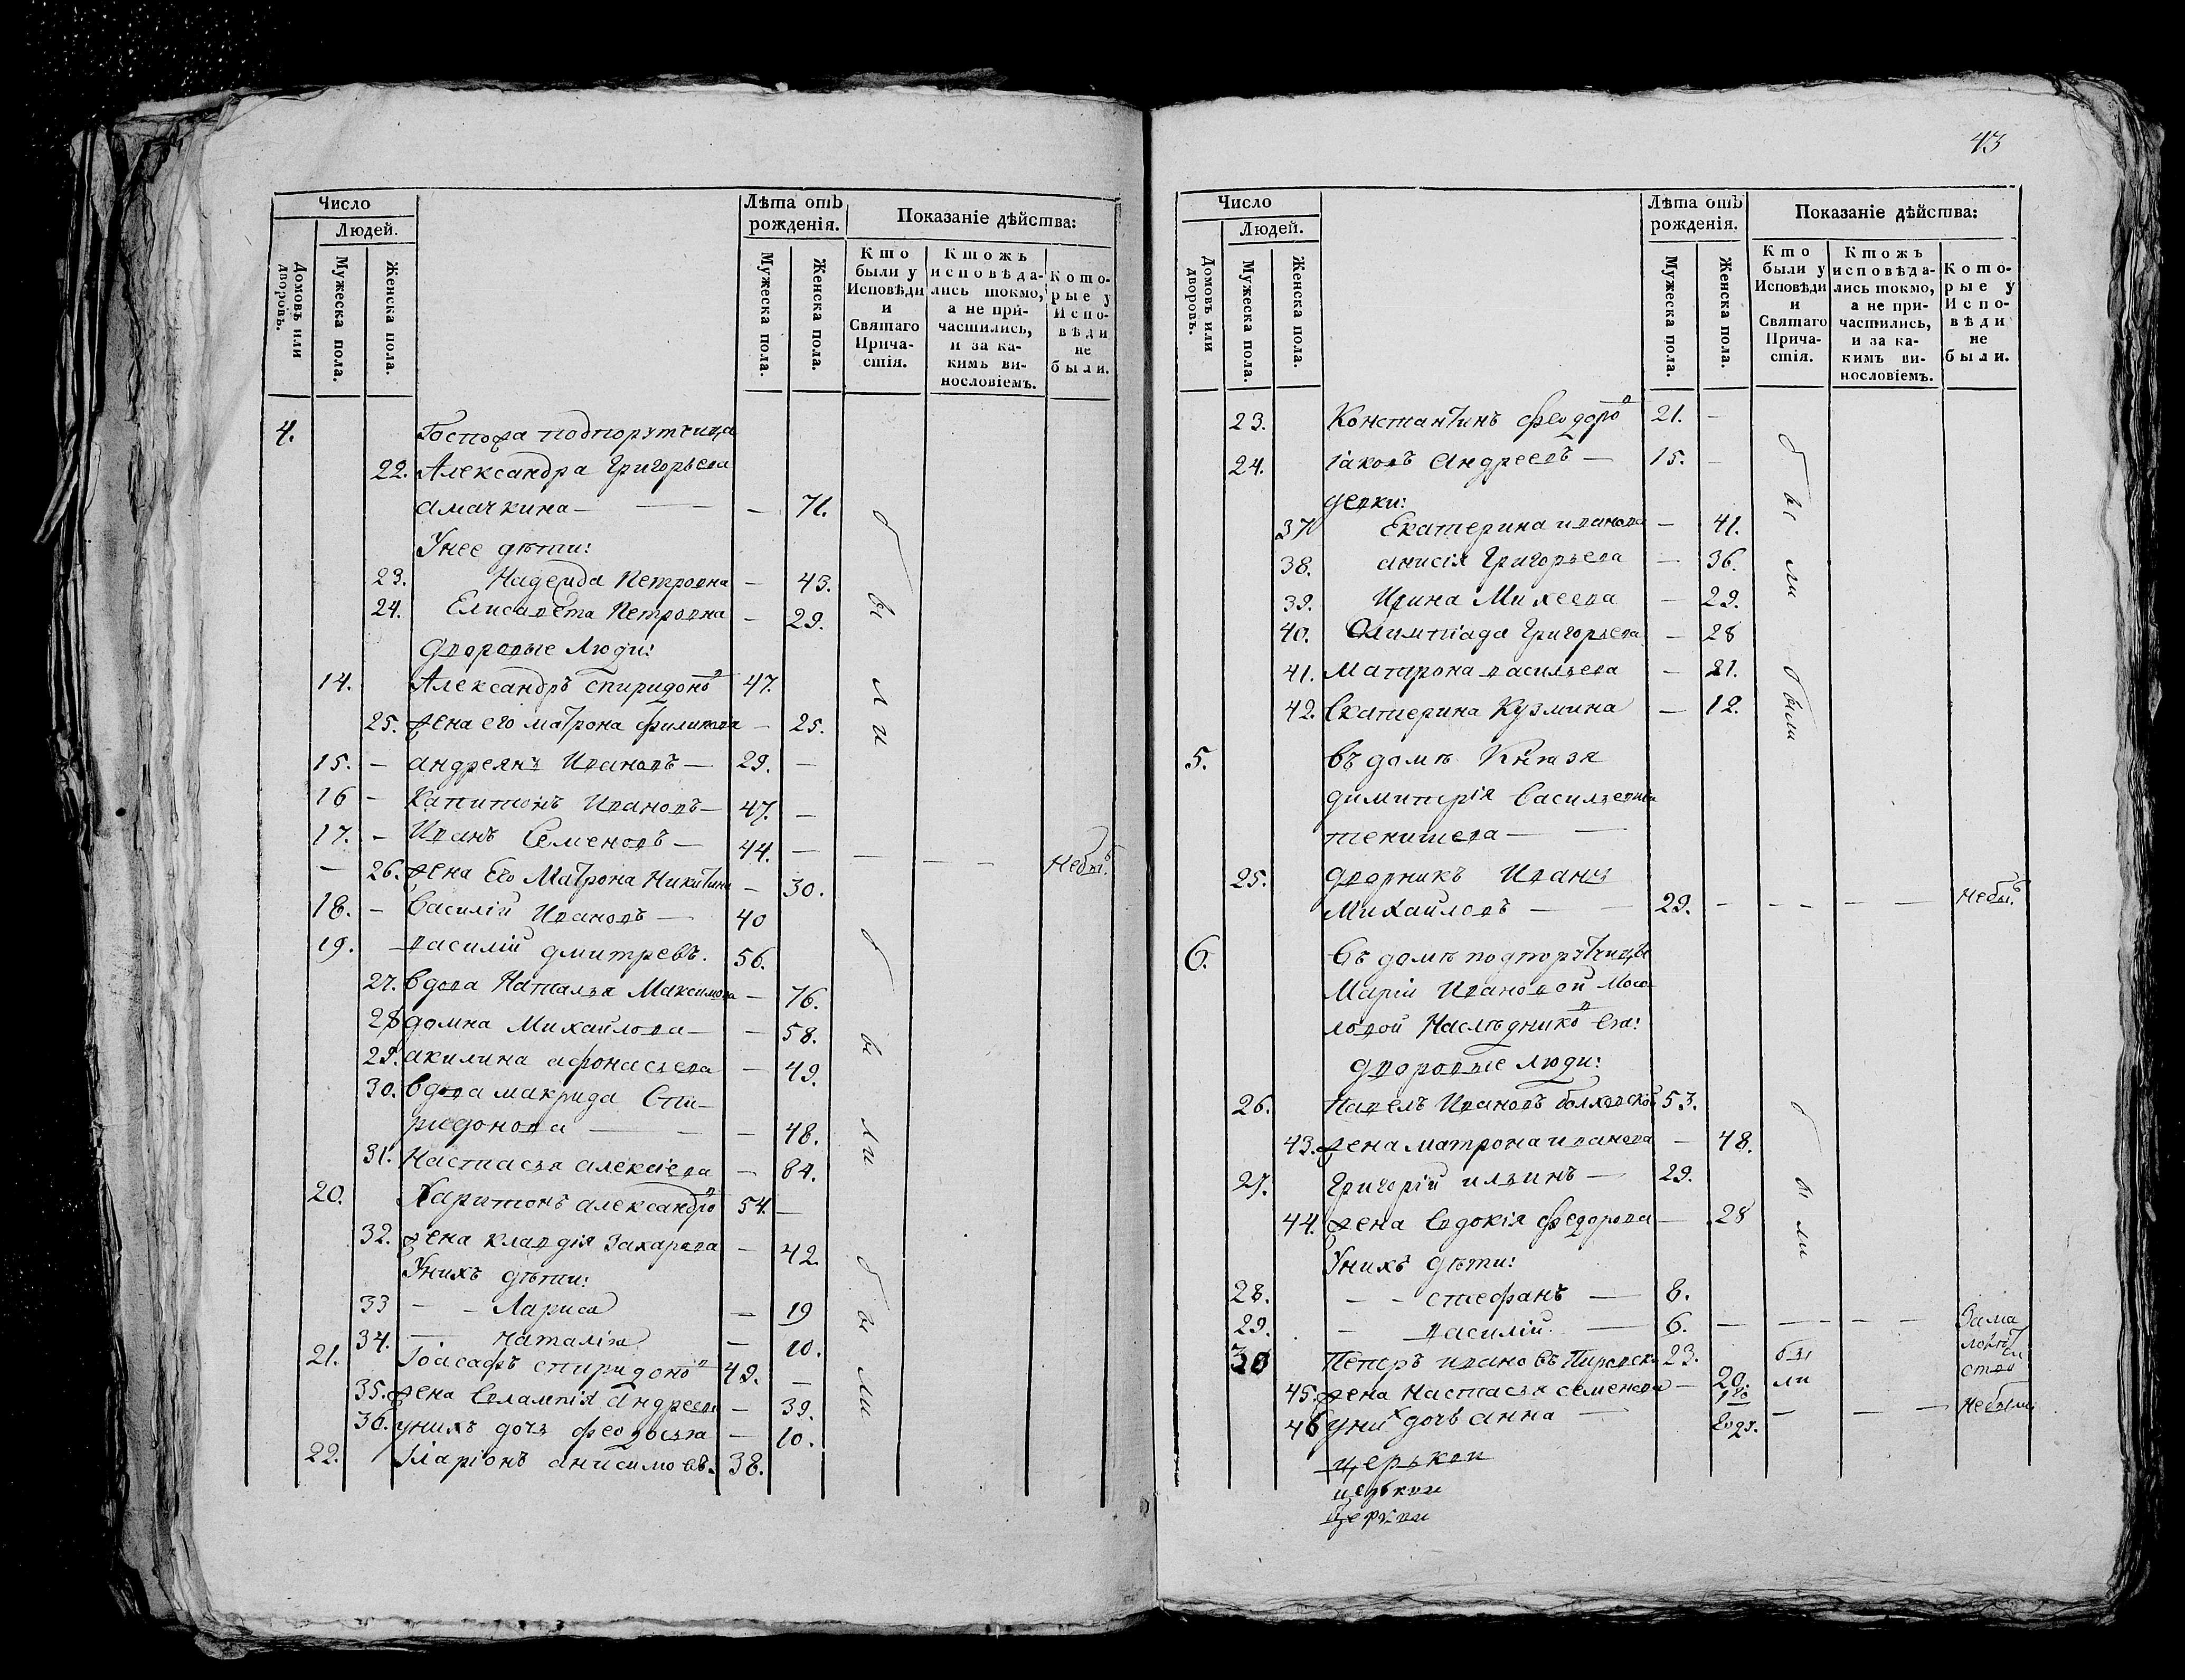 Число
Людей.
Домовъ или дворовъ.
Мужеска пола.
Женска пола.
Лѣта отъ рожденія.
Мужеска пола.
Женска пола.
Показаніе дѣйства:
Кто были у Исповѣди и Святаго Причастія.
Ктожъ исповѣдались токмо, а не причастились, и за какимъ винословіемъ.
Которые у Исповѣди не были.
4. Госпожа подпорутчица
22. Александра Григорьева
Амачкина — — — 71.
Унее дѣти:
23. Надежда Петровна — 43.
24. Елисавета Петровна — 29.
дворовые Люди:
14. Александръ Спиридоновъ 47.
25. жена его матрона филипова — 25.
15. — андреянъ Ивановъ — 29. —
16 — Капитонъ Ивановъ — 47. —
17. — Иванъ Семеновъ — 44. — — — — Небылъ
— 26. жена Его Матрона Никитина — 30.
18. — Василій Ивановъ — 40
19. — василій дмитревъ. 56.
27. вдова Наталья Максимова — 76.
28 домна Михайлова — — 58.
29. акилина афонасьева — 49.
30. вдова макрида Спи-
ридонова — — — 48.
31. Настасья алексіева — 64.
20. Харитонъ александровъ 54. —
32. жена клавдія Захарова — 42.
Унихъ дѣти:
33 — — Лариса — 19
34. — Наталія — 10.
21. Іоасафъ спиридоновъ 49. —
35. жена Евлампія Андреева — 39.
36. унихъ дочь феодосья — 10.
22. Іларіонъ анисимовъ. 38.
были
были
были
43
Число
Людей.
Домовъ или дворовъ.
Мужеска пола.
Женска пола.
Лѣта отъ рожденія.
Мужеска пола.
Женска пола.
Показаніе дѣйства:
Кто были у Исповѣди и Святаго Причастія.
Ктожъ исповѣдались токмо, а не причастились, и за какимъ винословіемъ.
Которые у Исповѣди не были.
23. Константинъ феодоровъ 21. —
24. Іаковъ Андреевъ — 15. —
девки:
37 Екатерина иванова — 41.
38. анисія Григорьева — 36.
39. Ирина Михеева — 29.
40. Олимпіада Григорьева — 28
41. Матрона васильева — 21.
42. Екатерина Кузмина — 12.
были
были
5. Въ домѣ Князя
димитрія Васильевича
тенишева — —
25. дворникъ Иванъ
Михайловъ — — 29. — — — — — Небылъ
6. Въ домѣ подпорутчицы
Маріи Ивановой Мосо-
ловой Наслѣдниковъ Ея:
дворовые люди:
26. Павелъ Ивановъ болховской 53.
43. жена матрона иванова — 48.
27. Григорій ильинъ — 29.
44. жена Евдокія федорова — 28
Унихъ дѣти:
28. — — стефанъ — 8.
29. — василій — 6. — — — — — За мало
лѣт
ство
30 Петръ ивановъ 23. бы
45. жена Настасья семенова — 20. ли
46 уних дочь анна — 1 го
году. — — — Небыли
были
церькви
церькви
церкви